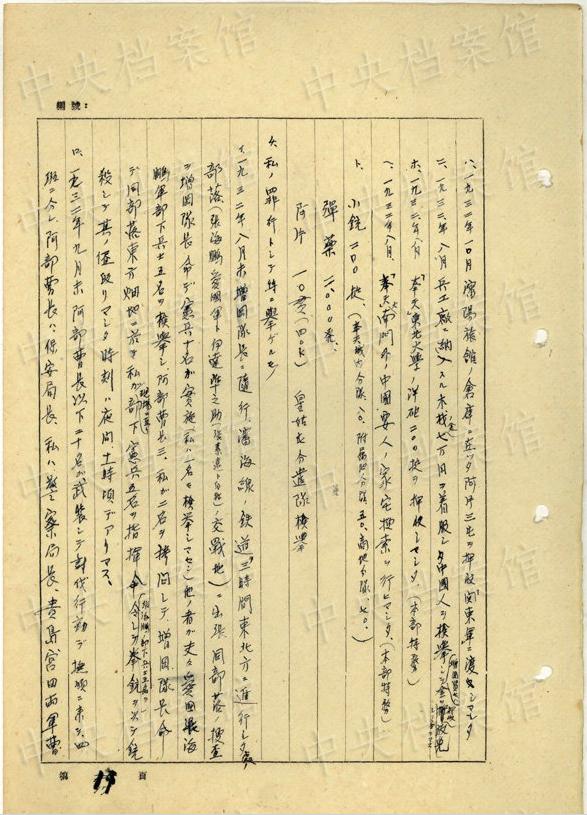 編號：
ハ、一九三二年一〇月瀋陽旅館ノ倉庫ニ在ッタ阿片三屯ヲ押收関東軍ニ渡シマシタ
ニ、一九三二、八月兵工廠ニ納入スル木栈 七万円ヲ着服シタ中國人ヲ検擧シ
ホ、一九三二年八月「奉天東北大學」ノ洋砲二〇〇挺ヲ押收シマシタ（本部特務）
ヘ、一九三二年八月、「奉天大南門外」中國要人ノ家宅捜索ヲ行ヒマシタ、（本部特務）
ト、小銃二〇〇挺、（奉天城内分隊八〇、附属地分隊五〇、商埠地分隊、七〇、）
彈藥 二、〇〇〇発、
阿片 一〇貫（四〇k） 皇姑屯分遣隊検擧
4、私ノ罪行トシテ特ニ擧ゲルモノ
イ、一九三二年八月末増岡隊長ニ随行、瀋海線、鉄道三時間東北方ニ進行シタ
部落（張海鵬愛國軍ト伊達隼之助 交戰地）ニ出張同部落ノ捜査
ヲ増岡隊長ノ命デ憲兵十名ガ実施（私ハ一名モ検擧シマセン）他ノ者ガ丈々愛國張海
鵬軍部下兵士五名ヲ検擧シ、阿部曹長三、私ガ二名ヲ拷問シテ、増岡隊長命
デ同部落東方畑地ニ於テ私ガ部下憲兵五名ヲ指揮命令シテ拳銃ヲ以テ銃
殺シテ其ノ侭殴リマシタ時刻ハ夜間十時頃デアリマス、
ロ、一九三二年九月末阿部曹長以下二十名ガ武裝シテ討伐行動デ撫順ニ来テ、四
班ニ分レ阿部曹長ハ保安局長、私ハ警察局長、貴島宮田両軍曹
第 19 頁
中央档案馆